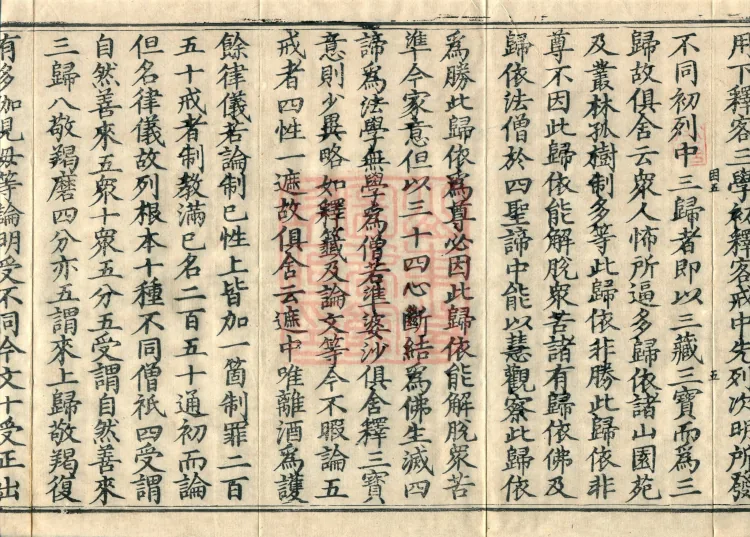 用下釋客三學初釋客戒中先列次明所發
不同初列中三歸者即以三藏三寶而爲三
歸故俱舍云衆人怖所逼多歸依諸山園苑
及叢林孤樹制多等此歸依非勝此歸依非
尊不因此歸依能解脫衆苦諸有歸依佛及
歸依法僧於四聖諦中能以慧觀察此歸依
爲勝此歸依爲尊必因此歸依能解脫衆苦
準今家意但以三十四心斷結爲佛生滅四
諦爲法學無學爲僧若準婆沙俱舍釋三寶
意則少異略如釋籤及論文等今不暇論五
戒者四性一遮故俱舍云遮中唯離酒爲護
餘律儀若論制已性上皆加一箇制罪二百
五十戒者制教滿已名二百五十通初而論
但名律儀故列根本十種不同僧祇四受謂
自然善來五衆十衆五分五受謂自然善來
三歸八敬羯磨四分亦五謂來上歸敬羯復
有多加見母等論明受不同今文十受正出
五